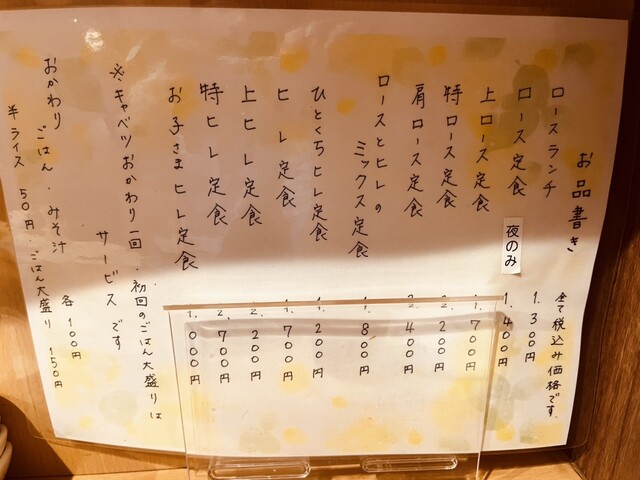 お品書き
全て税込み価格です。
ロースランチ 1.300円
ロース定食 夜のみ 1.400円
上ロース定食 1.700円
特ロース定食 2.200円
肩ロース定食 2.400円
ロースとヒレの
ミックス定食 1.800円
ひとくちヒレ定食 1.200円
ヒレ定食 1.700円
上ヒレ定食 2.200円
特ヒレ定食 2.700円
お子さまヒレ定食 1.000円
※キャベツおかわり一回・初回のごはん大盛りは
サービスです
おかわり ごはん・みそ汁 各100円
半ライス 50円・ごはん大盛り 150円